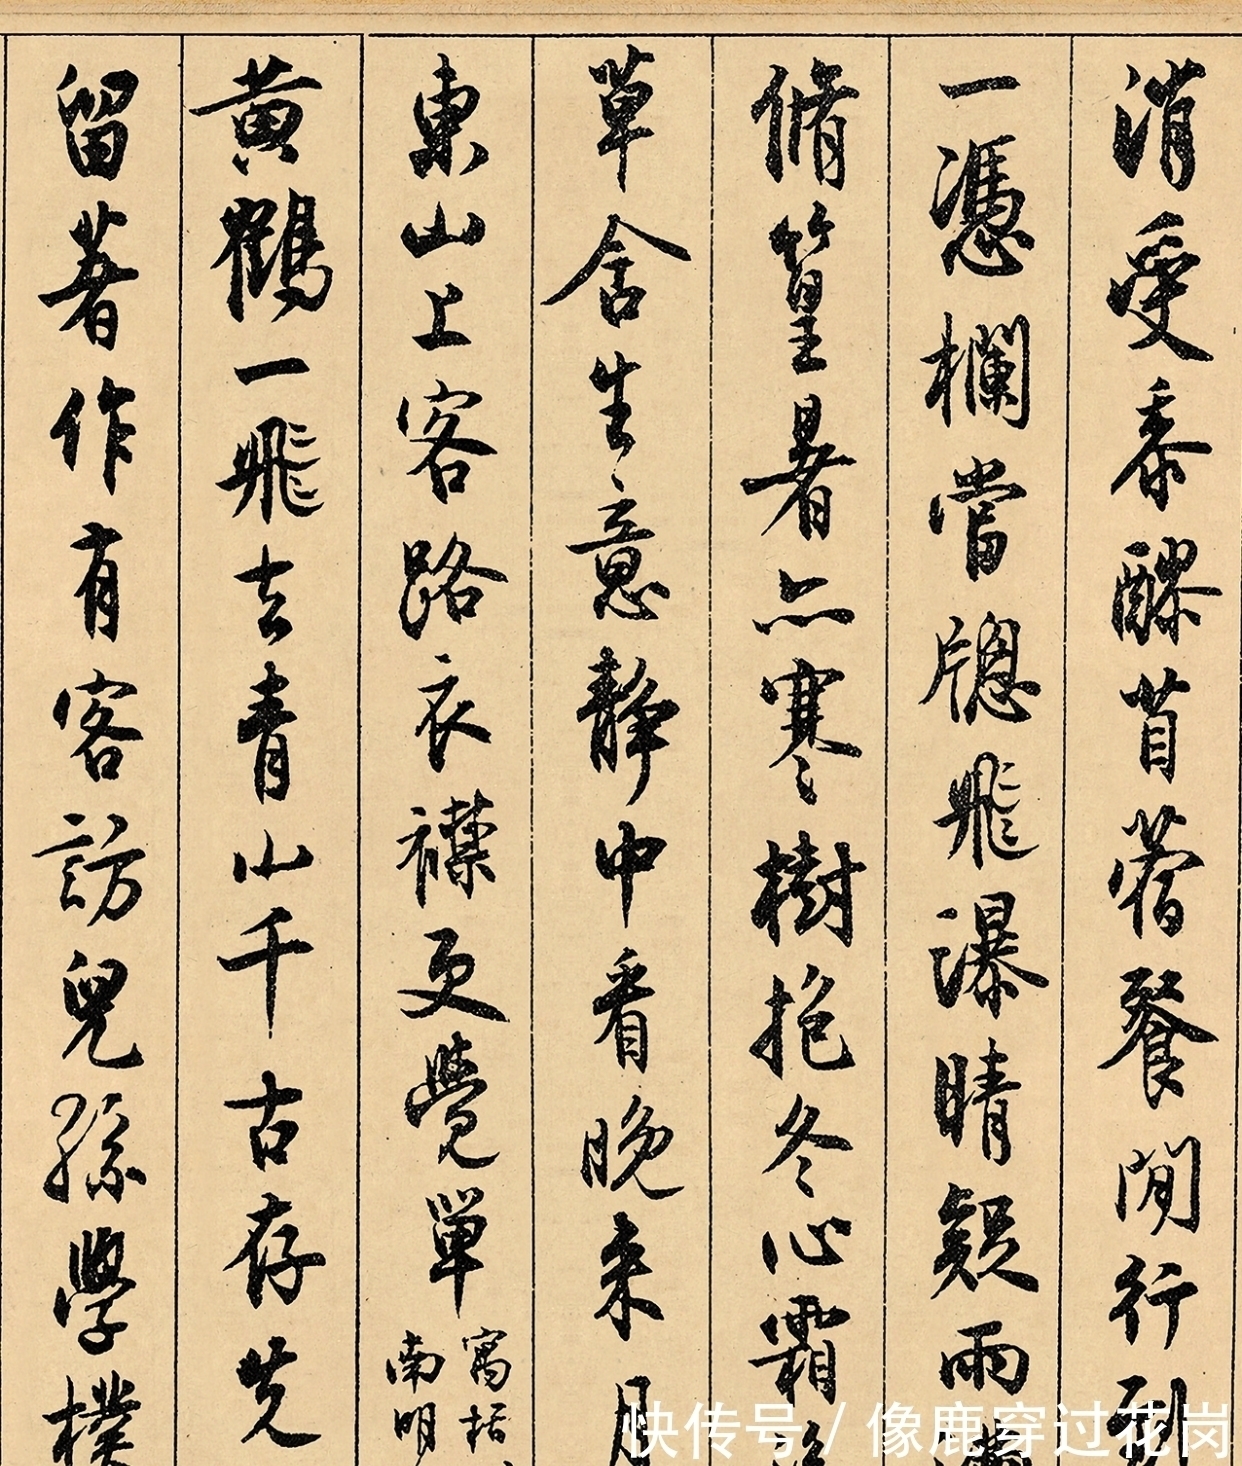 消受黍醪苜蓿餐閒行到
一憑欄當牕飛瀑晴疑雨滿
脩篁暑亦寒樹抱冬心霜
草舍生意靜中看晚来月
東山上客路衣襟更覺單寓栝
南明
黄鶴一飛去青山千古存先
留著作有客訪兒孫學樸
快传号 / 像鹿穿过花岗